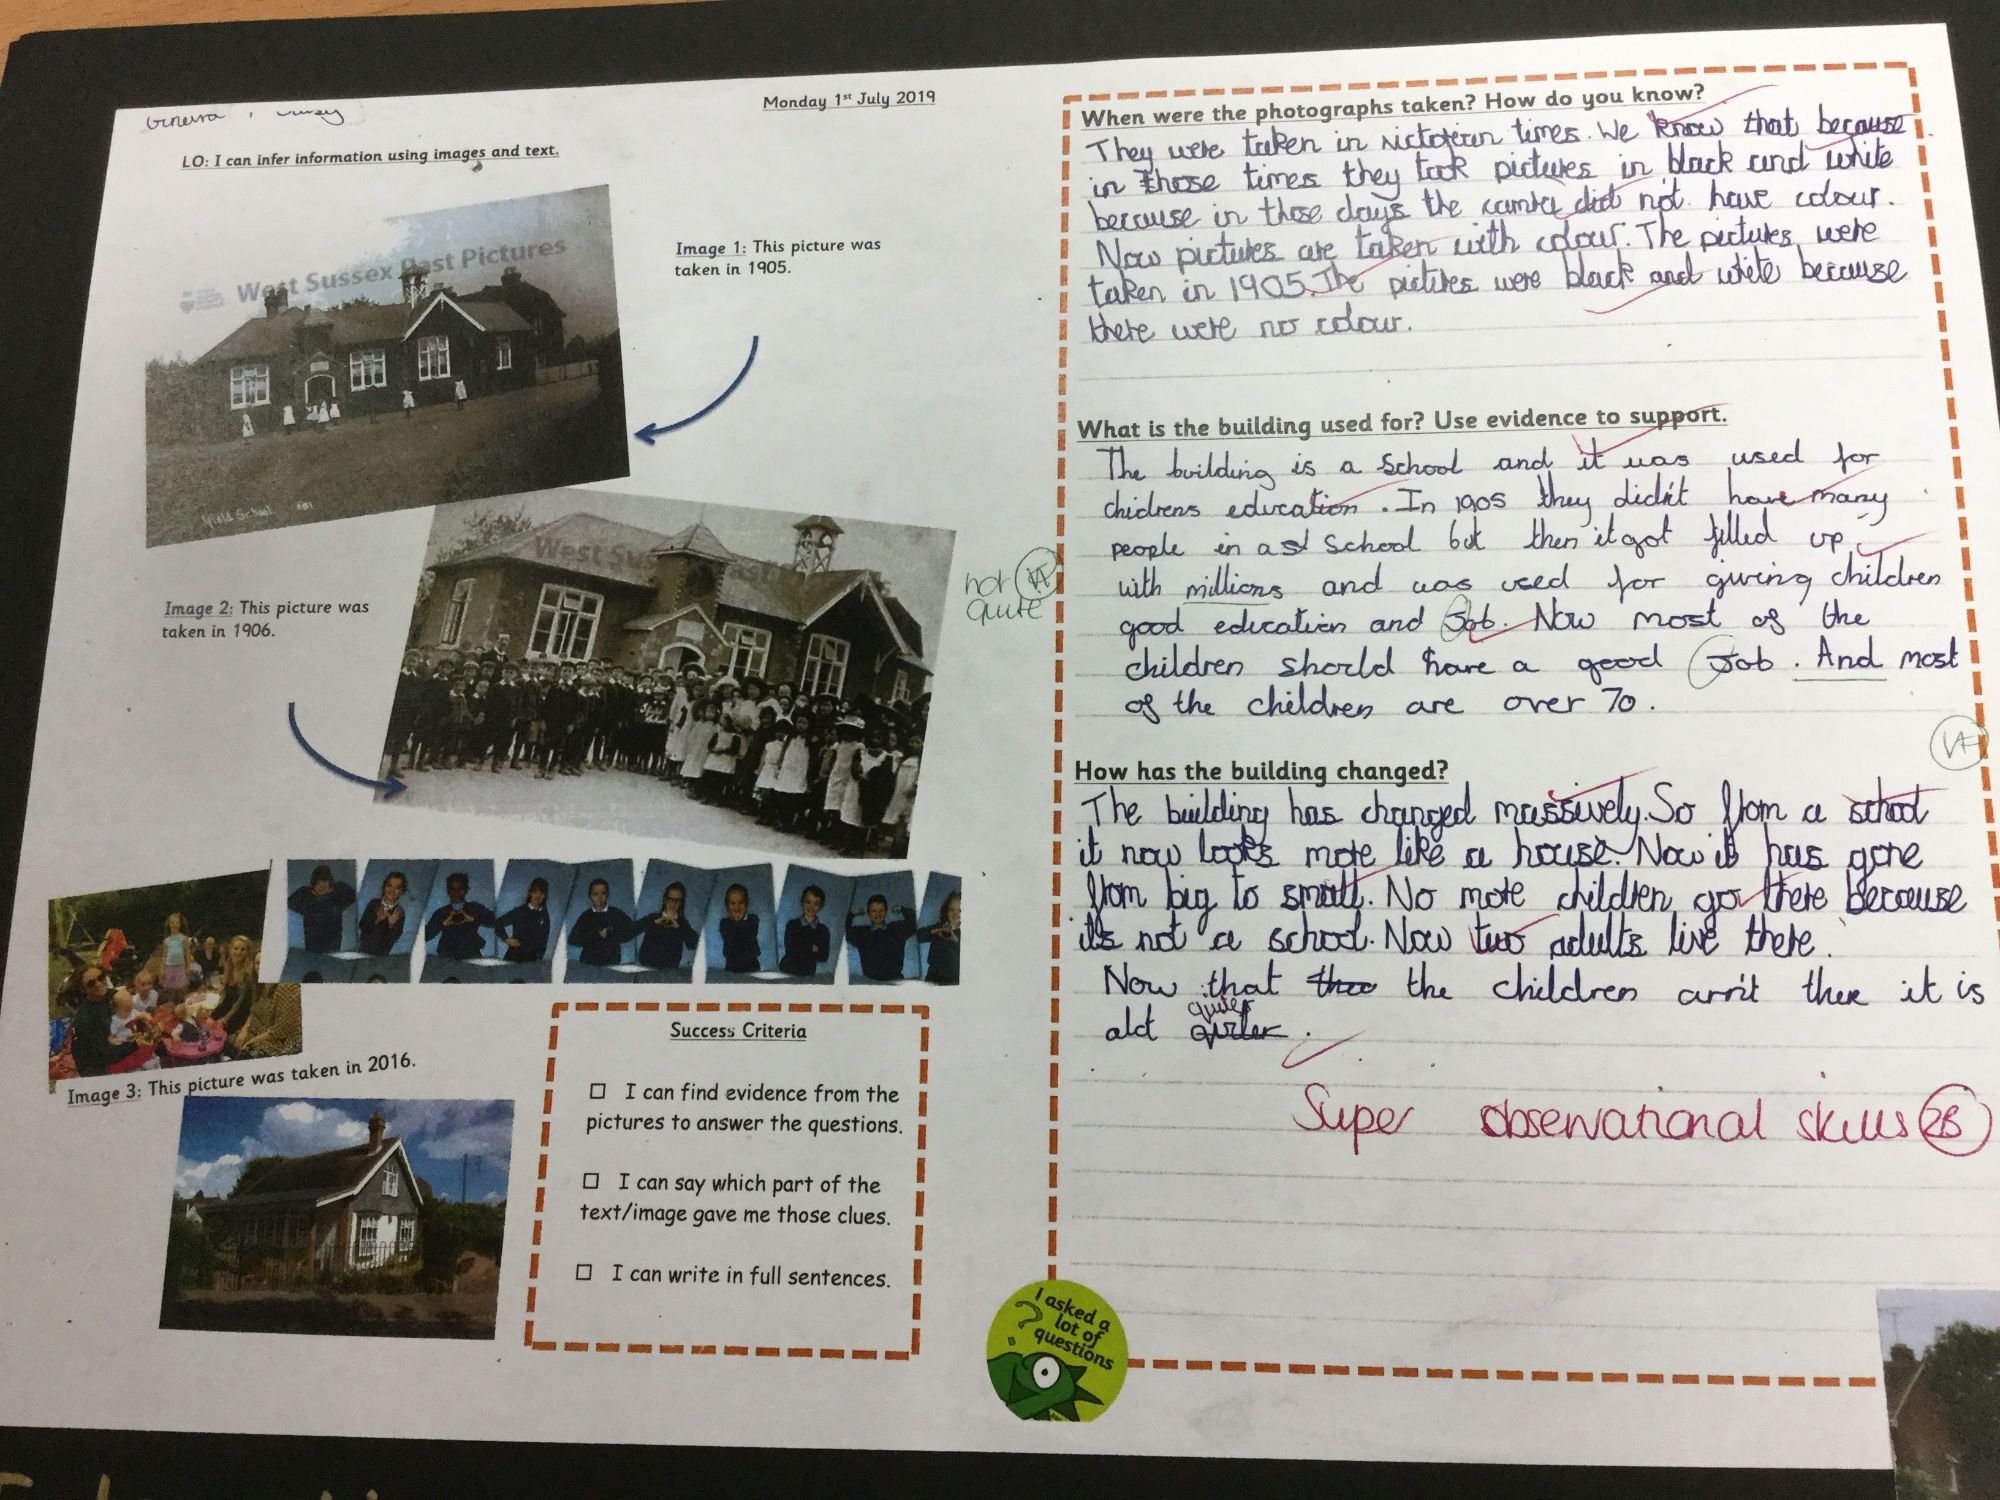 Monday 1st July 2019
LO: I can infer information using images and text.
West Sussex Past Pictures
Image 1: This picture was
taken in 1905.
Ifield School
West Sus
Image 2: This picture was
taken in 1906.
Image 3: This picture was taken in 2016.
Success Criteria
☐ I can find evidence from the
pictures to answer the questions.
☐ I can say which part of the
text/image gave me those clues.
☐ I can write in full sentences.
When were the photographs taken? How do you know?
They were taken in victorian times. We know that because
in those times they took pictures in black and white
because in those days the camra did not have colour.
Now pictures are taken with colour. The pictures were
taken in 1905. The pictures were black and white because
there were no colour.
What is the building used for? Use evidence to support.
The building is a School and it was used for
chidrens education. In 1905 they didn't have many
people in a School but then it got filled up
with millions and was used for giving children
good education and Job. Now most of the
children should have a good Job. And most
of the children are over 70.
not
quite
How has the building changed?
The building has changed massively. So from a school
it now looks more like a house. Now it has gone
from big to small. No more children go there because
it's not a school. Now two adults live there.
Now that the children arn't ther it is
alot quieter.
Super observational skills
I asked a
lot of
questions
?